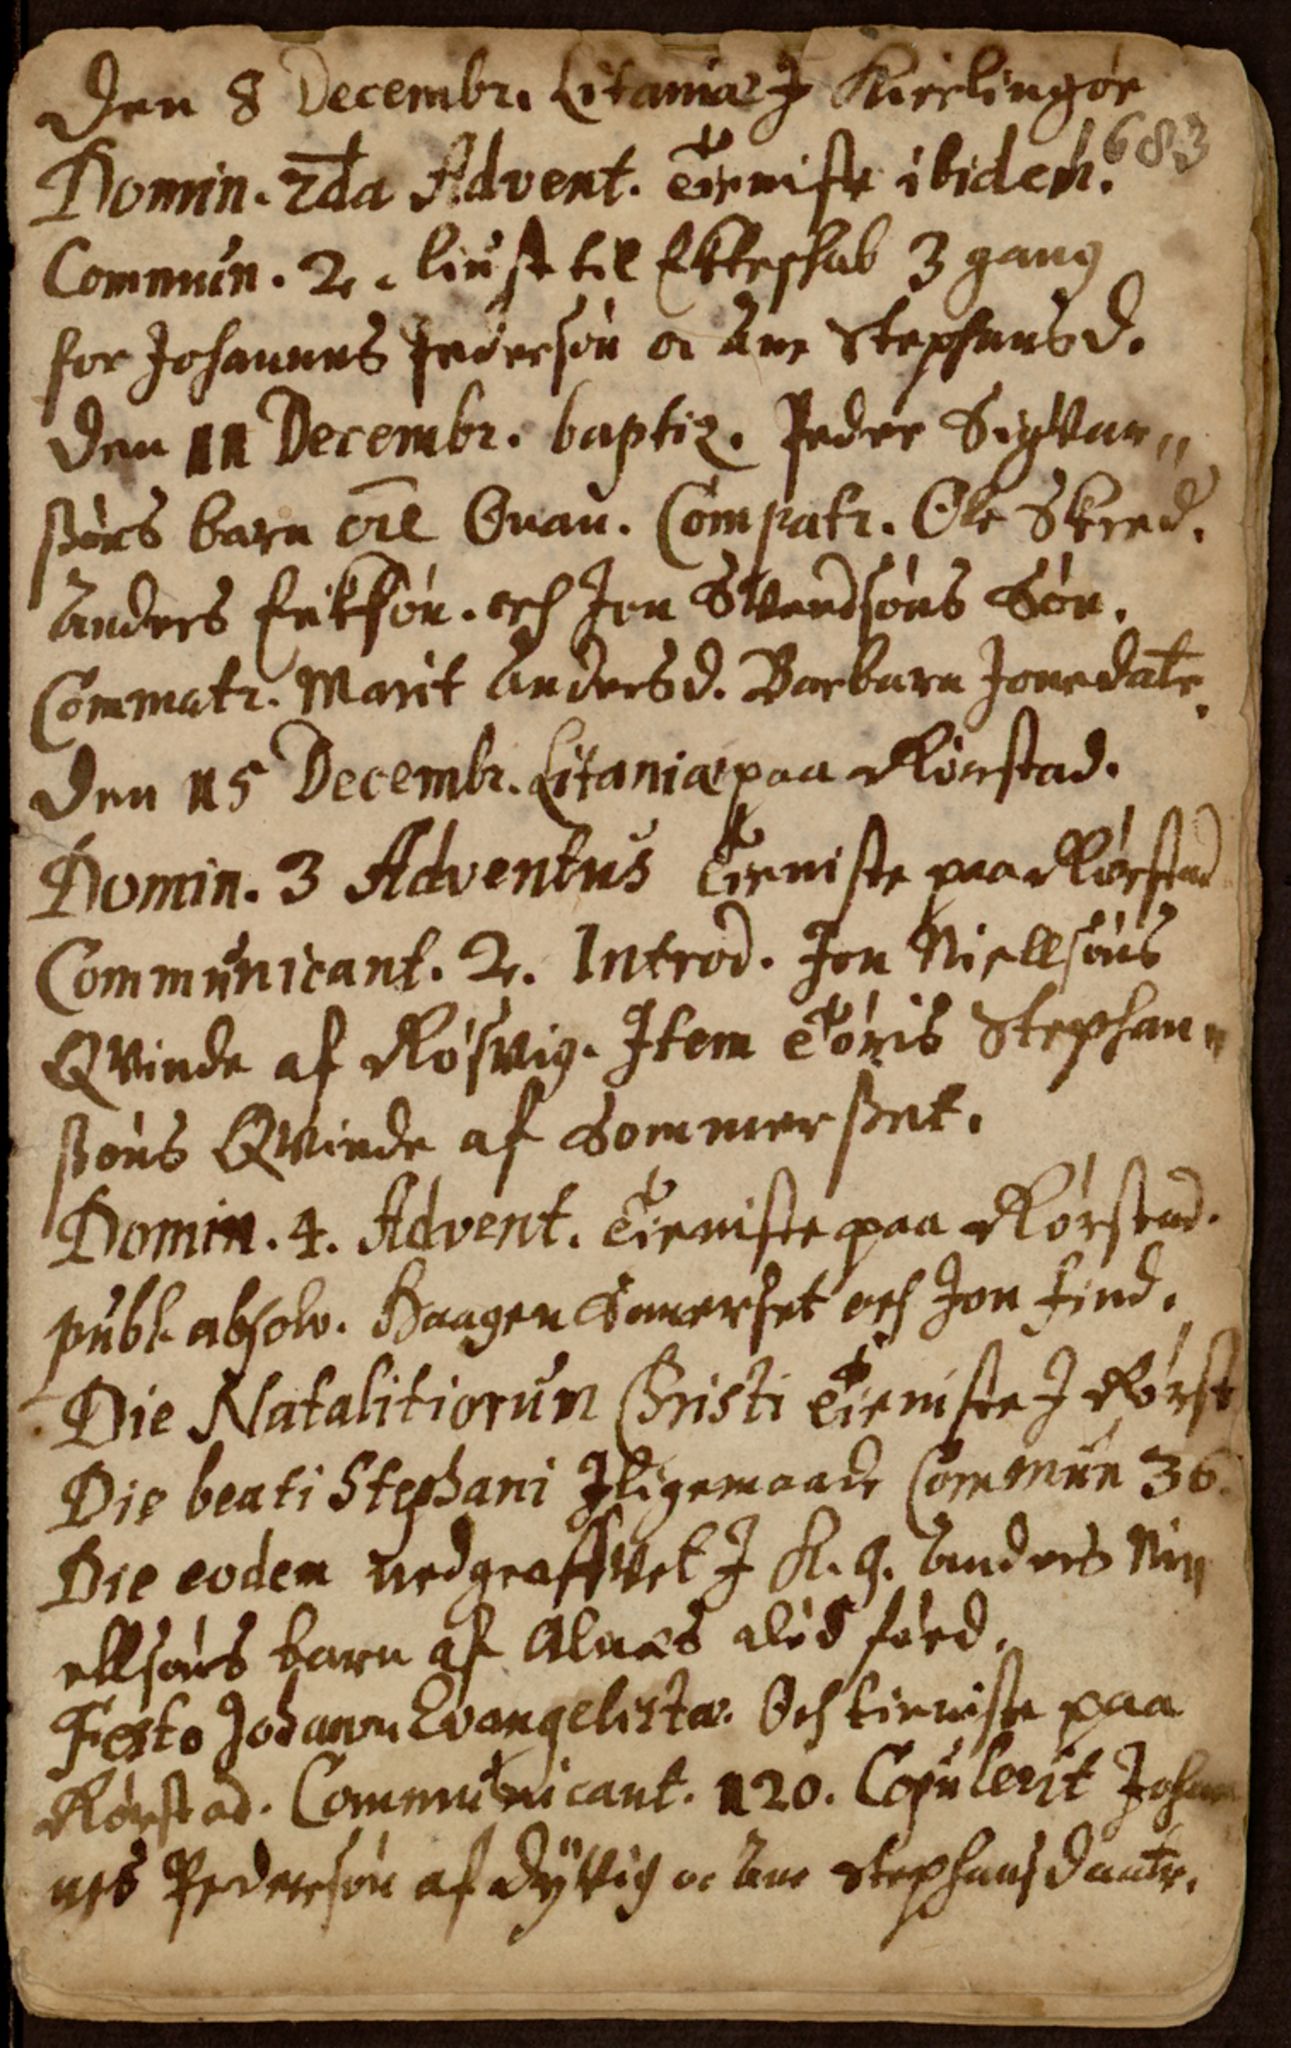 Den 8 Decembr. Litaniæ J Kierlingør
683
Domin. 2da Advent. Tieniste ibidem.
Commun. 2. liust til Ekteskab 3 gang
for Johannes Pedersøn oc Ane Stephensd.
Den 11 Decembr. baptiz. Peder Sigvar„
ßøns barn Guau. Compatr. Ole Skred.
Anders Eriksøn. och Jon Svendsøns Søn.
Commatr. Marit Andersd. Barbara Jonsdatr.
Den 15 Decembr. Litaniæ paa Rørstad.
Domin. 3 Adventus Tieniste paa Rørstad
Communicant. 2. Introd. Jon Niellsøns
Qvinde af Røsvig. Item Tøris Stephan„
ßøns Qvinde af Sommerßet.
Domin. 4. Advent. Tieniste paa Rørstad.
publ. absolv. Haagen Somerset och Jon Find.
Die Natalitiorum Christi Tieniste J Rørst
Die beati Stephani Jligemaade Commun 36.
Die eodem nedgraffvet J K. g. Anders Ni„
ellsøns barn af Alnes død førd.
Festo Johann. Evangelistæ. Och tieniste paa
Rørstad. Communicant. 120. Copulerit Johan
nes Pedersøn af Dyvig oc Ane Stephansdaatr.